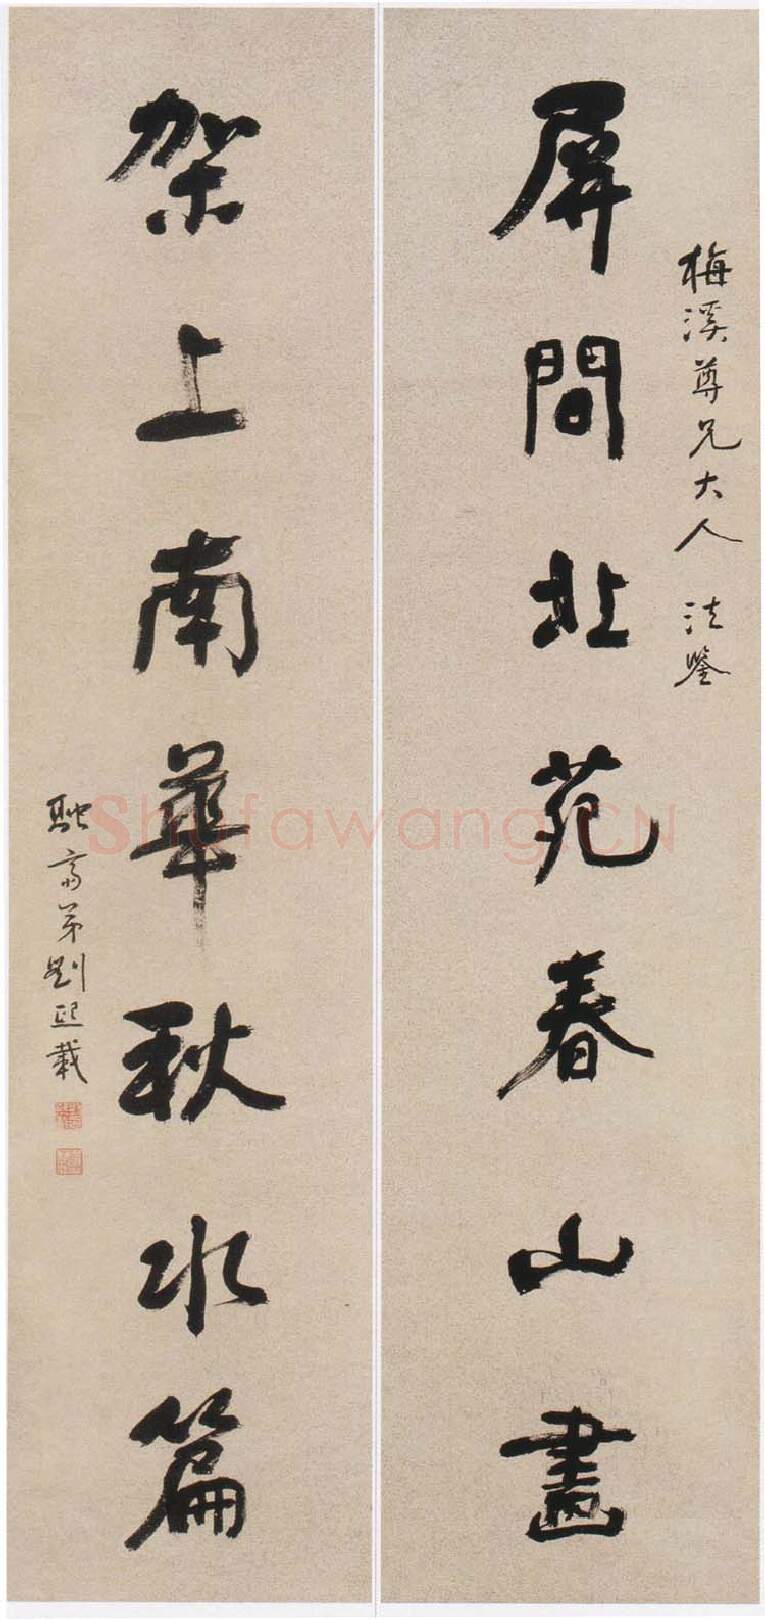 梅溪尊兄大人 法鑒
屏間北苑春山畫
架上南華秋水篇
耿齋弟劉熙載
Shufawang.CN